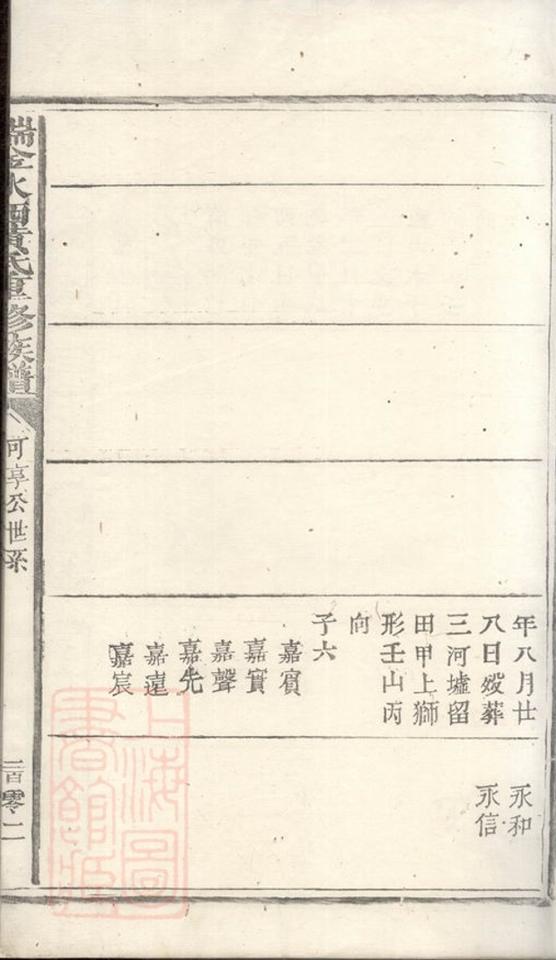 年八月廿
八日歿葬
三河墟留
田甲上獅
形壬山丙
向
子六
嘉賓
嘉實
嘉聲
嘉先
嘉遠
嘉宸
永和
永信
瑞金水西黃氏重修族譜
可亨公世系
二百零二
上海圖書館藏